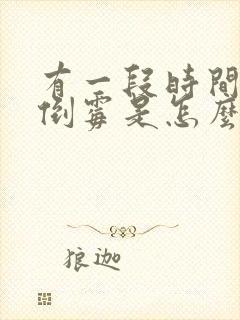 有一段時間
倒霉是怎麼
狼迦